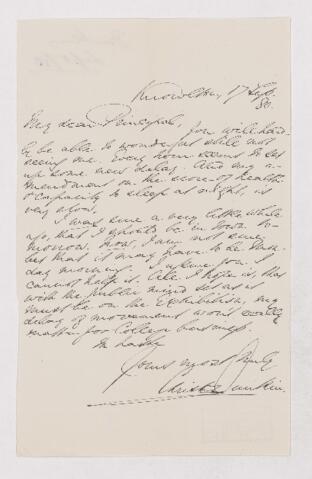 Knowlton, 17 Sept.
80.
My dear Principal,
You will hard-
ly be able to wonder at still not
seeing me. Every hour seems to set
up some new delay. And my a-
mendment on the score of health
& capacity to sleep at night, is
very slow.
I was sure a very little while
ago, that I should be in town to-
morrow. Now, I am not sure
but that it may have to be Mon-
day morning. I assure you I
cannot help it. All I hope is, that
with the public mind set as it
must be on the Exhibition, my
delay of movement won't really
matter for College business.
In haste
Yours most truly